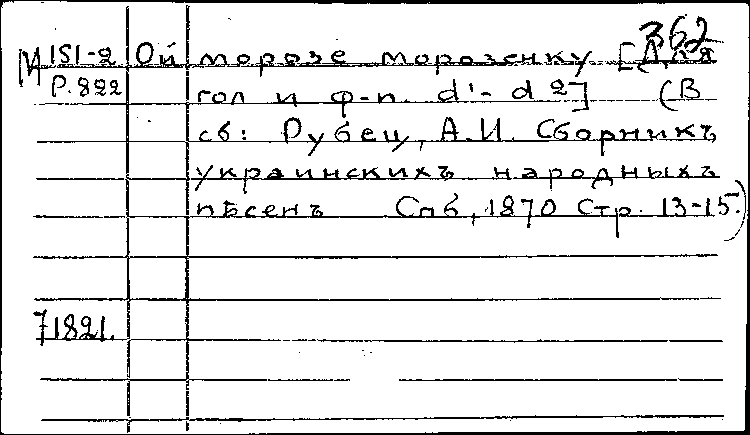 362
М 151-2 Ой морозе морозенку [Для
Р.822 гол и ф-п. d¹- d²] (В
сб: Рубец, А.И. Сборникъ
украинскихъ народныхъ
пѣсенъ Спб, 1870 Стр. 13-15.)
71821.